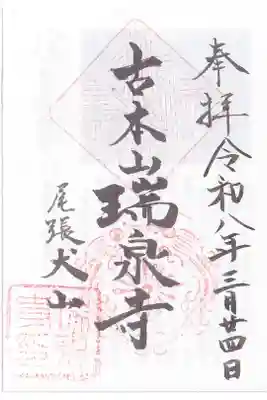 奉拝令和八年三月廿四日
古木山瑞泉寺
尾張犬山